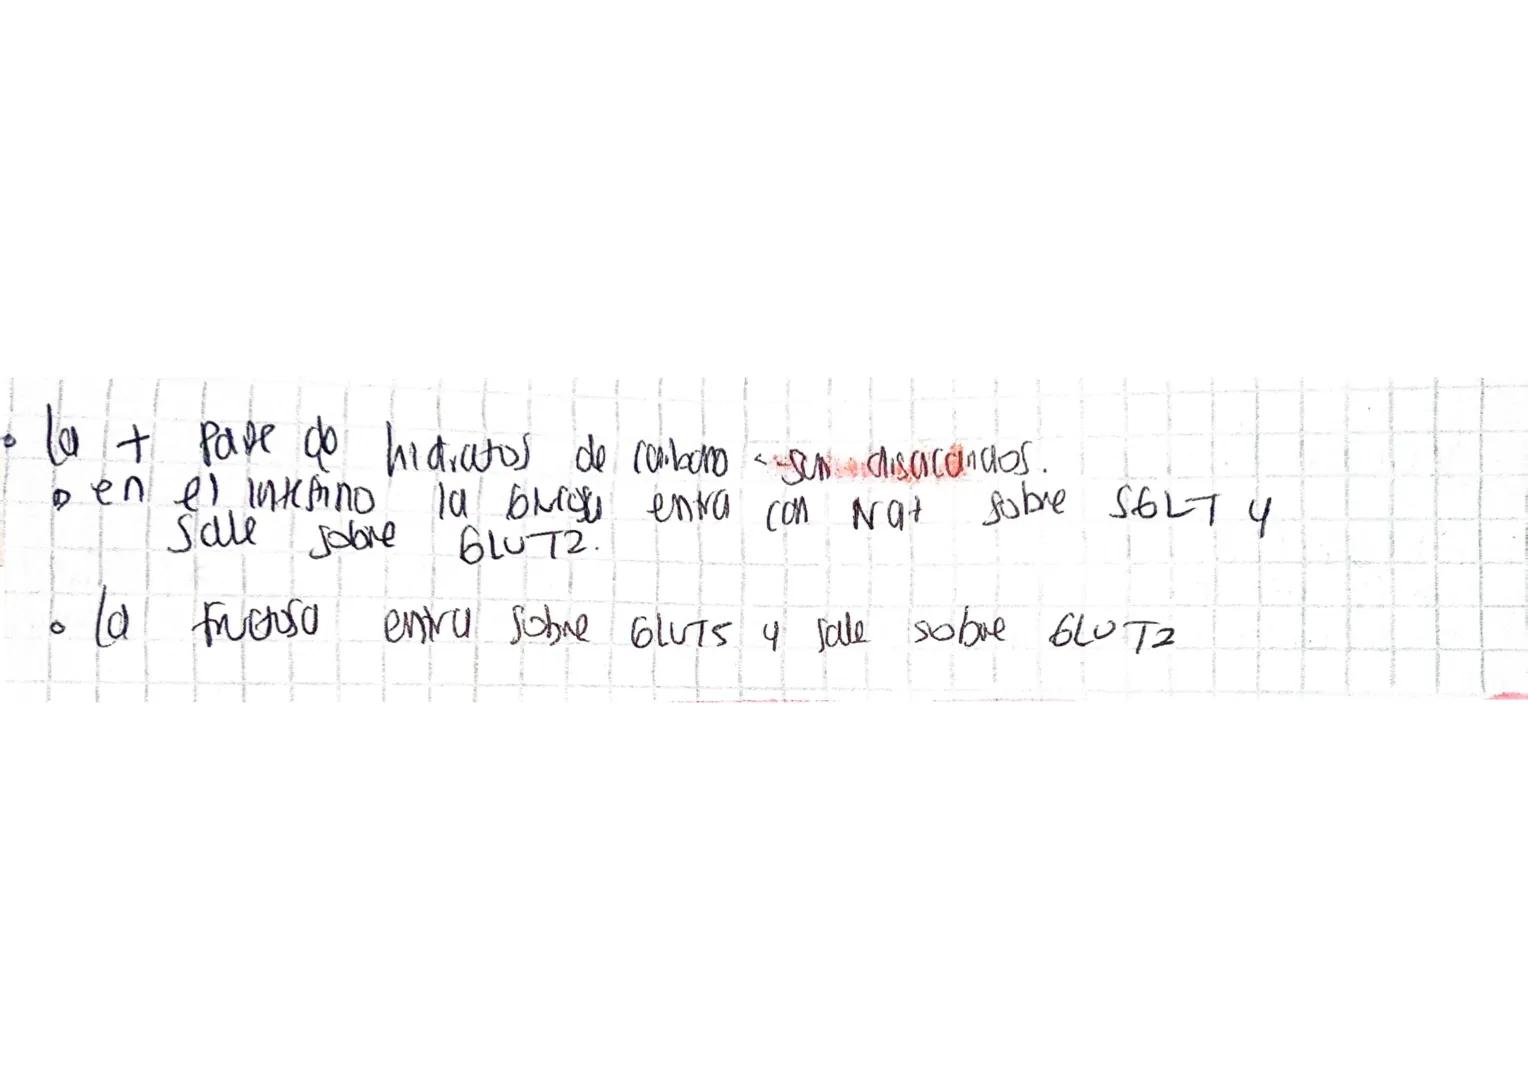 • la + parte de hidratos de carbono < son disacáridos.
• en el intestino la Glucosa entra con Na+ sobre SGLT y
sale sobre GLUT2.
• la fructosa entra sobre GLUT5 y sale sobre GLUT2